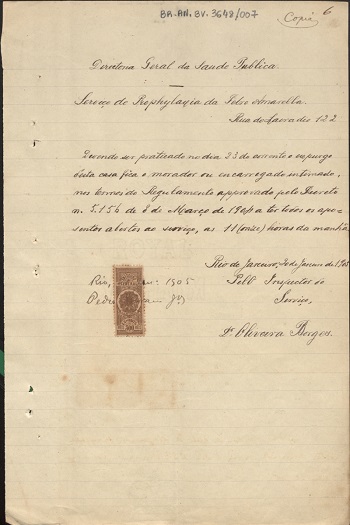 BR.AN.BV.3648/007
Copia 6
Directoria Geral da Saude Publica.
Serviço de Prophylaxia da Febre Amarella.
Rua do Lavradio 122
Devendo ser praticado no dia 23 do corrente o expurgo
desta casa fica o morador ou encarregado intimado,
nos termos do Regulamento approvado pelo Decreto
n. 5.154 de 8 de Março de 1904 a ter todos os apo-
sentos abertos ao serviço, as 11 (onze) horas da manhã.
Rio de Janeiro, de Janeiro de 1905
Rio, 1905
Pelo Inspector do
Pedro
Serviço,
Dr. Oliveira Borges.
300